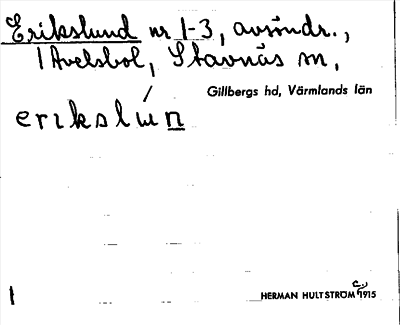 Erikslund nr 1-3, avsöndr.,
1 Avelsbol, Stavnäs sn,
Gillbergs hd, Värmlands län
erikslun
1
HERMAN HULTSTRÖM 1915